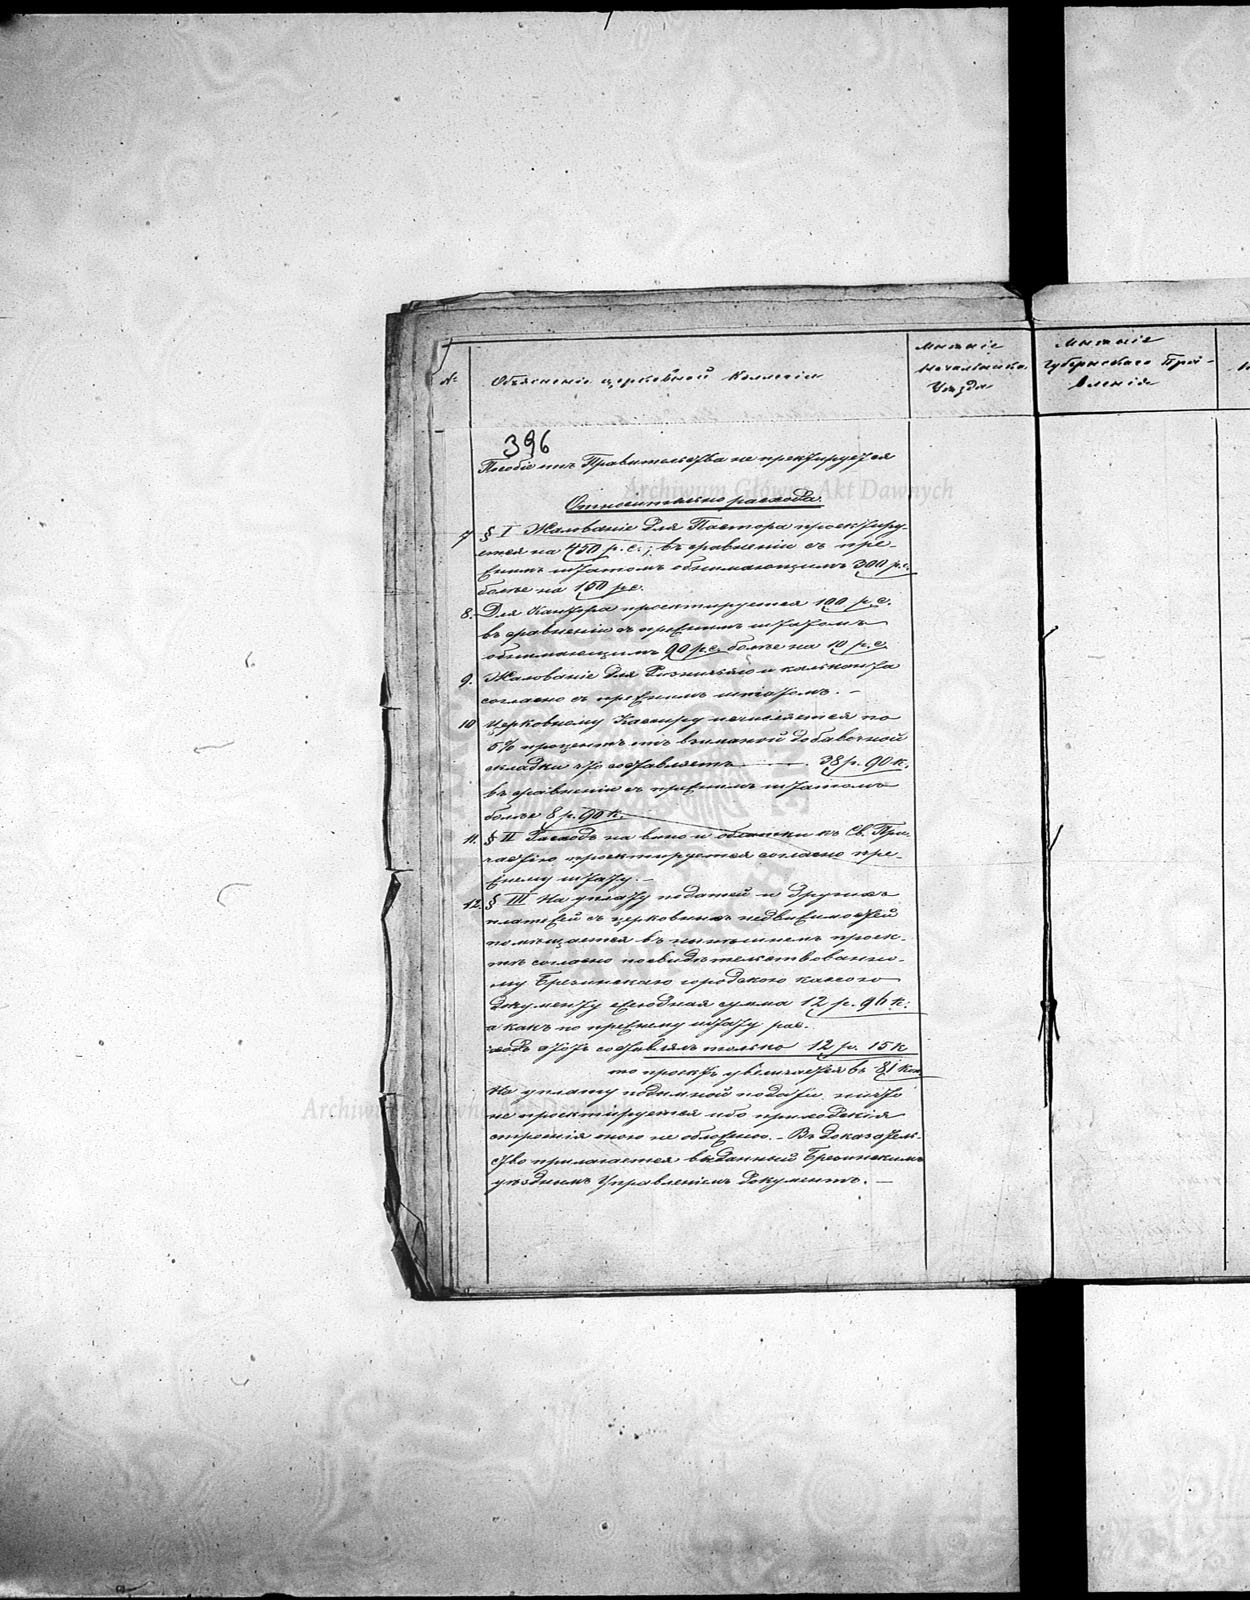 №
Объясненіе церковной Коллегіи
Мнѣніе
Начальника
Уѣзда
Мнѣніе
Губернскаго Прав-
ленія
396
Пособіе отъ Правительства не проектируется
Archiwum Główne Akt Dawnych
Относительно расхода.
7 § I Жалованіе для Пастора проектиру-
ется на 450 р. с., въ сравненіи съ пре-
жнимъ штатомъ обнимающимъ 300 р. с.
болѣе на 150 р. с.
8. Для Кантора проектируется 100 р. с.
въ сравненіи съ прежнимъ штатомъ
обнимающимъ 90 р. с. болѣе на 10 р. с.
9. Жалованіе для Ризничьяго и кальканта
согласно съ прежнимъ штатомъ. –
10 Церковному Кассиру исчисляется по
5% процентъ отъ взиманой добавочной
складки что составляетъ 38 р. 90 к.
въ сравненіи съ прежнимъ штатомъ
болѣе 8 р. 90 к.
11. § II Расходъ на вино и облатки къ Св. При-
частію проектируется согласно пре-
жнему штату. –
12. § III На уплату податей и другихъ
платежей съ церковныхъ недвижимостей
помѣщается въ нынѣшнемъ проек-
тѣ согласно посвидѣтельствованно-
му Брезинскаго городскаго кассою
документу ежегодная сумма 12 р. 96 к.
а какъ по прежнему штату рас-
ходъ этотъ составлялъ только 12 р. 15 к
то проектъ увеличается въ 81 коп
На уплату подымной подати ничего
не проектируется ибо приходскія
строенія оною не обложено. – Въ доказатель-
ство прилагается выданный Брезинскимъ
уѣзднымъ Управленіемъ документъ. –
Archiwum Główne Akt Dawnych